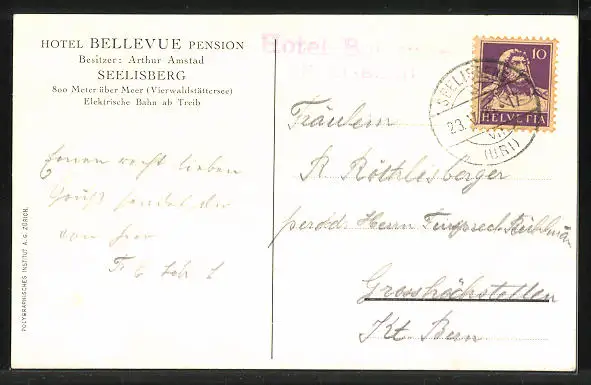 HOTEL BELLEVUE PENSION
Besitzer: Arthur Amstad
SEELISBERG
800 Meter über Meer (Vierwaldstättersee)
Elektrische Bahn ab Treib
Hotel
10
HELVETIA
SEELISBERG
23.
(URI)
Einen recht lieben
Gruss sendet dir
von hier
Fräulein
R Röthlisberger
Herrn
Grosshöchstetten
Kt Bern
POLYGRAPHISCHES INSTITUT A. G. ZÜRICH.